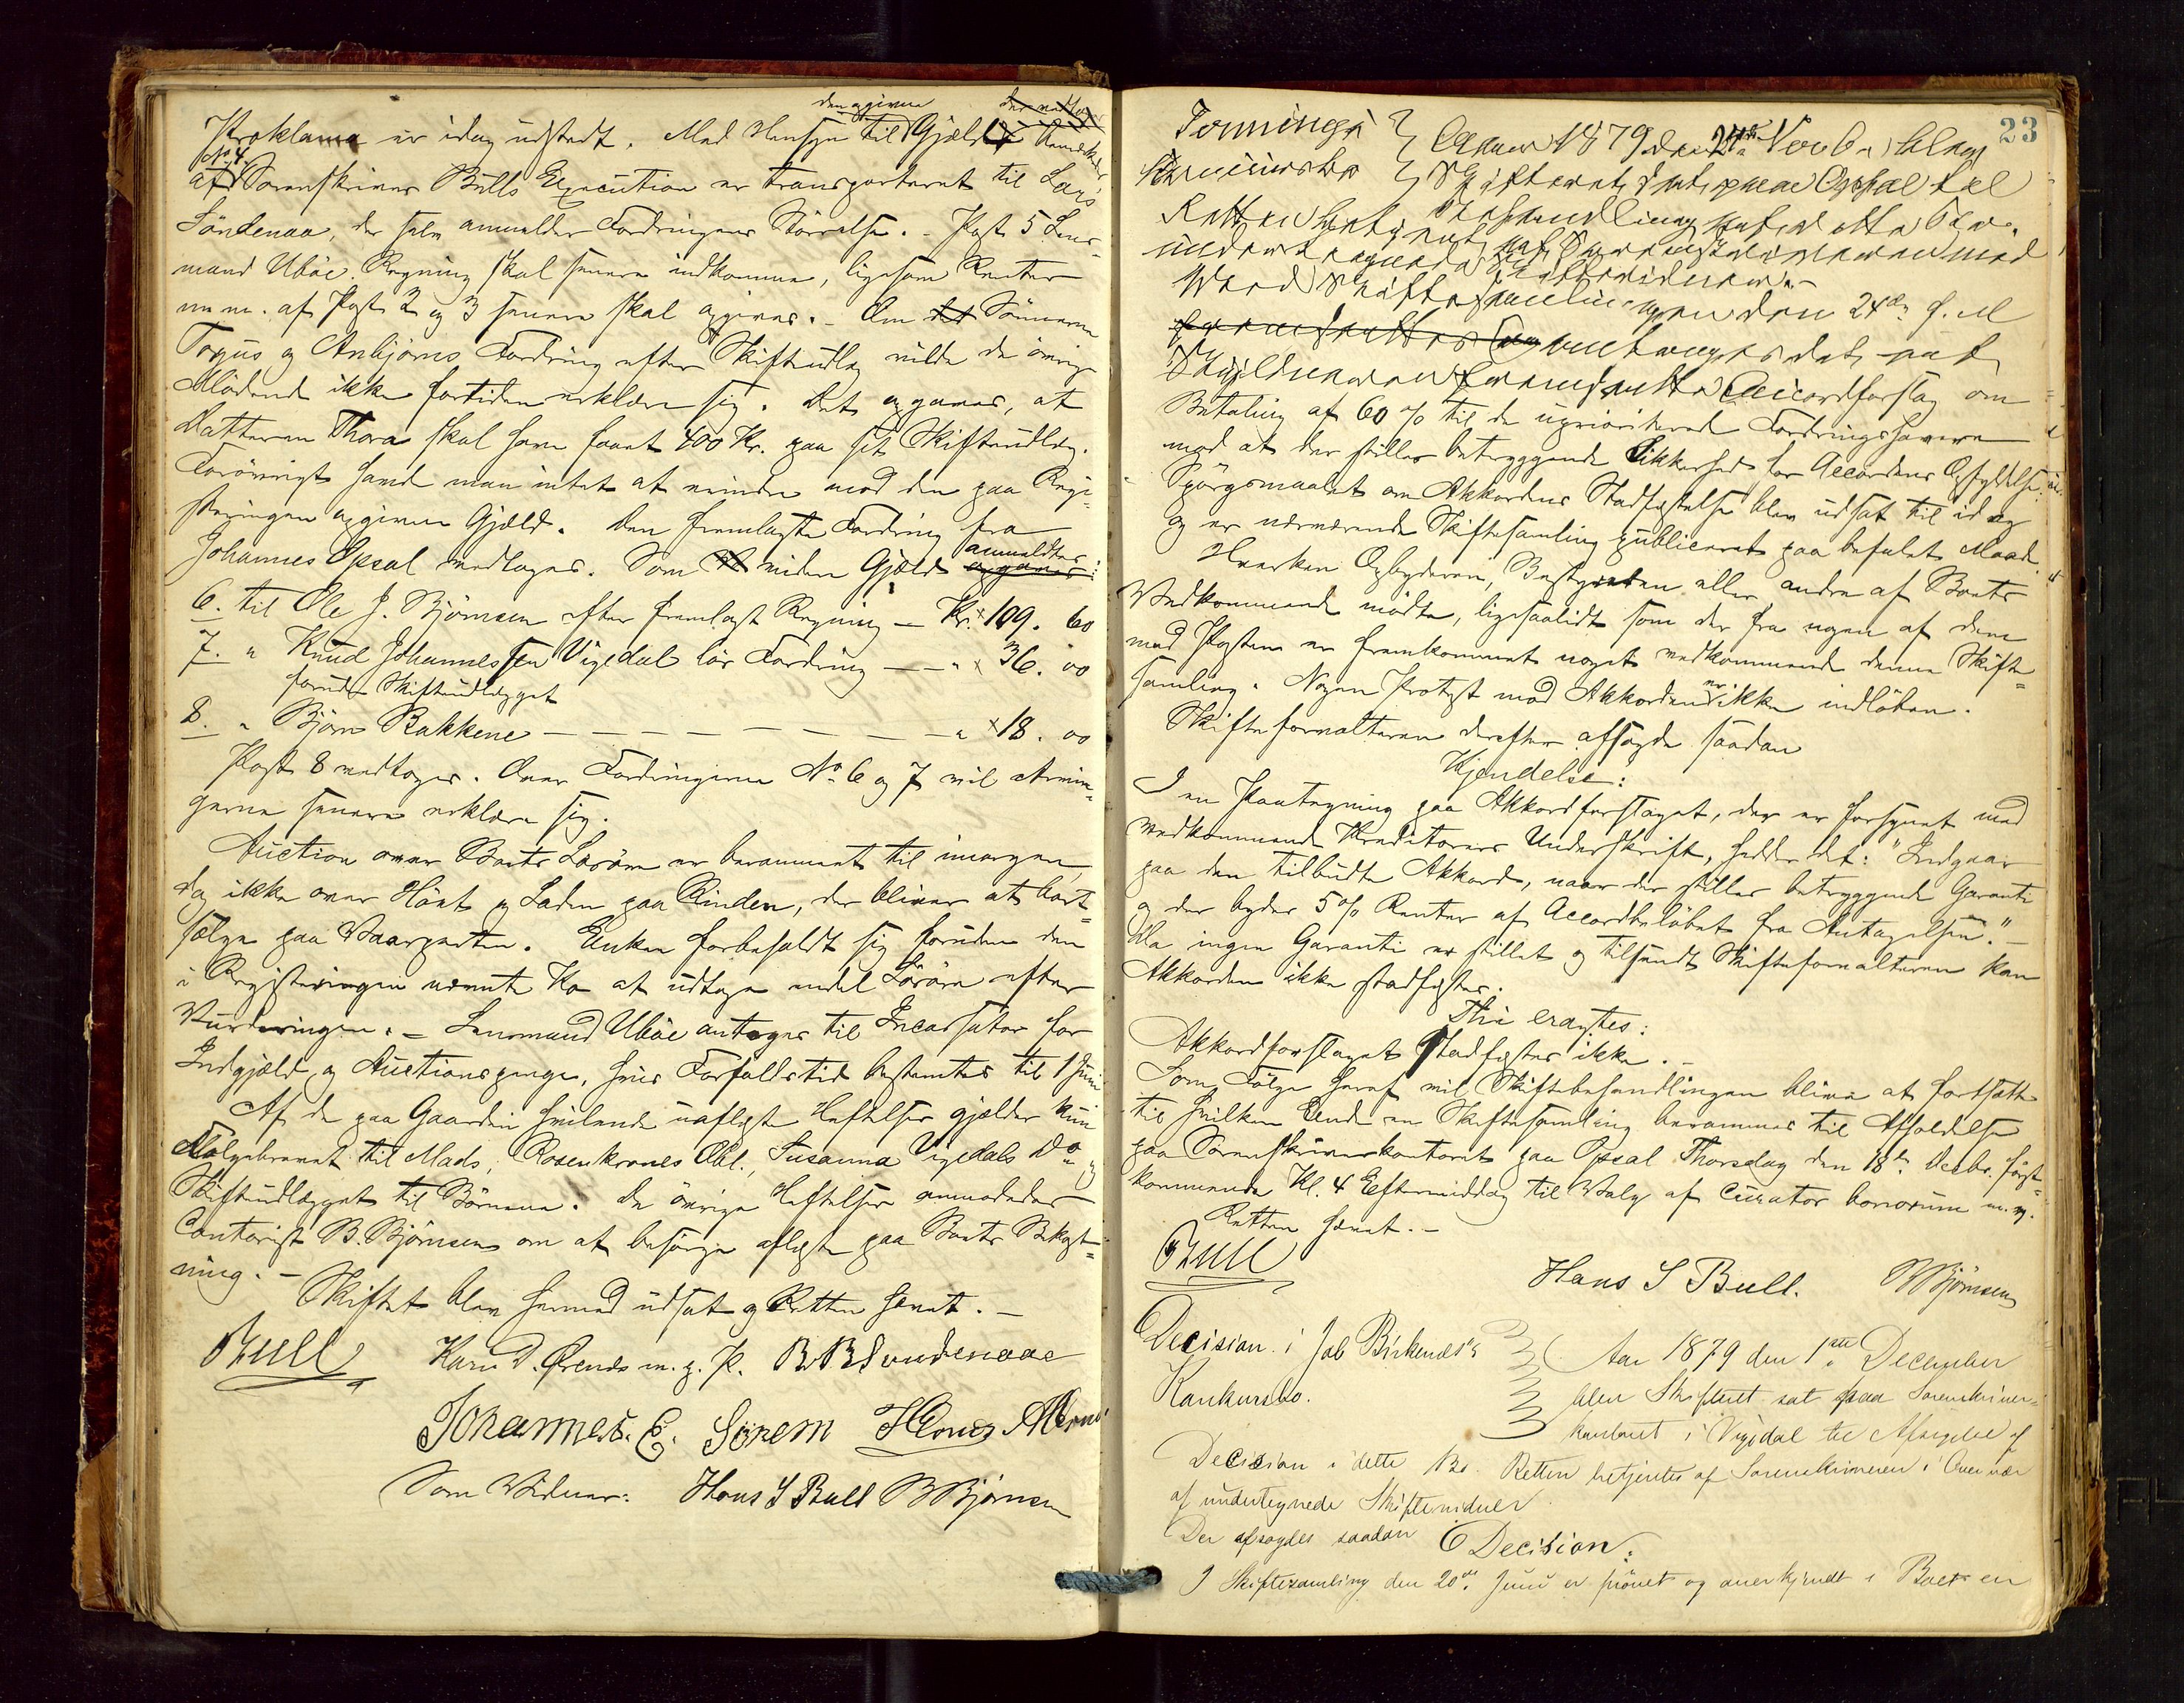 Proklama er idag udstedt. Med Hensyn til den opgivne Gjæld
No 4.
af Sorenskriver Bulls Execution er transporteret til Lars
Söndenaa, der selv anmelder Fordringens Störrelse. - Post 5 Lens-
mand Uböe Regning skal senere indkomme, ligesom Renter
m. m. af Post 2 og 3 senere skal opgives. - Om det Sönnerne
og Anbjörns Fordring efter Skifteudlæg vilde de övrige
Mödende ikke fortiden erklære sig. Det opgaves, at
Datteren Thora skal have faaet 400 Kr. paa sit Skifteudlæg.
Forövrigt havde man intet at erindre mod den paa Regi-
streringen opgivne Gjæld. Den fremlagte Fordring fra
Johannes Opsal vedtoges. Som viden Gjæld anmeldtes opgaves:
6. til Ole J. Björnsen efter fremlagt Regning - Kr. 109. 60
7. " Knud Johannessen Vigedal lör Fordring - - " 36. 00
foruden Skifteudlægget
8. " Björn Bakkene - - - - - - - - " 18. 00
Post 8 vedtoges. Over Fordringerne No 6 og 7 vil Arvin-
gerne senere erklære sig.
Auction over Boets Lösöre er berammet til imorgen,
dog ikke over Höet og Laden paa Rinden, der bliver at bort-
sælge paa Vaarparten. Enken forbeholdt sig foruden den
i Registreringen nævnte Ko at udtage endel Lösöre efter
Vurderingen. - Lensmand Uböe antoges til Incassator for
Indgjæld og Auctionspenge, hvis Forfaldstid bestemtes til 1 Juni
Af de paa Gaarden hvilende uaflyste Heftelser gjælder kun
Følgebrevet til Mads, Rosenkrones Obl., Susanna Vigedals Do og
Skifteudlægget til Börnene. De övrige Heftelser anmodedes
Contorist B. Björnsen om at besörge aflyst paa Boets Bekost-
ning. -
Skiftet blev hermed udsat og Retten hævet. -
Bull Kari D. Ørends m. p. P. B B Sondenaae
Johannes. E. Sörem
Som Vidner: Hans S Bull B Björnsen
23
Aar 1879 den 24de Novb. blev
Skifteret sat paa Opsal til
Behandling af dette Bo.
Retten betjent af Sorenskriveren med
undertegnede Skiftevidner. -
Ved Skiftesamlingen den 24de f. M
fremsattes antoges det af
Skyldneren fremsatte Accordforslag om
Betaling af 60 % til de uprioriterede Fordringshavere
mod at der stilles betryggende Sikkerhed for Accordens Opfyldelse.
Spörgsmaalet om Akkordens Stadfæstelse blev udsat til idag
og er nærværende Skiftesamling publiceret paa befalet Maade.
Hverken Opbyderen, Bestyrelsen eller andre af Boets
Vedkommende mödte, ligesaalidt som der fra nogen af dem
med Posten er fremkommet noget vedkommende denne Skifte-
samling. Nogen Protest mod Akkorden er ikke indlöben.
Skifteforvalteren derefter afsagde saadan
Kjendelse:
I en Paategning paa Akkordforslaget, der er forsynet med
vedkommende Kreditorers Underskrift, hedder det: "Indgaar
paa den tilbudte Akkord, naar der stilles betryggende Garanti
og der bydes 5 % Renter af Accordbelöbet fra Antagelsen." -
Da ingen Garanti er stillet og tilsendt Skifteforvalteren kan
Akkorden ikke stadfæstes.
Thi eragtes:
Akkordforslaget stadfæstes ikke. -
Som Fölge heraf vil Skiftebehandlingen blive at fortsætte
til hvilken Ende en Skiftesamling berammes til Afholdelse
paa Sorenskriverkontoret paa Opsal Thorsdag den 18de Decbr. först-
kommende Kl. 4 Eftermiddag til Valg af Curator bonorum m. m.
Retten hævet. -
Bull
Hans S Bull. B Björnsen
Decision i Job Birkenæs's
Konkursbo.
Aar 1879 den 1ste December
blev Skifteret sat paa Sorenskriver-
kontoret i Vigedal til Afsigelse af
Decision i dette Bo. Retten betjentes af Sorenskriveren i Overvær
af undertegnede Skiftevidner
Der afsagdes saadan Decision:
I Skiftesamling den 20de Juni er prövet og anerkjendt i Boet en